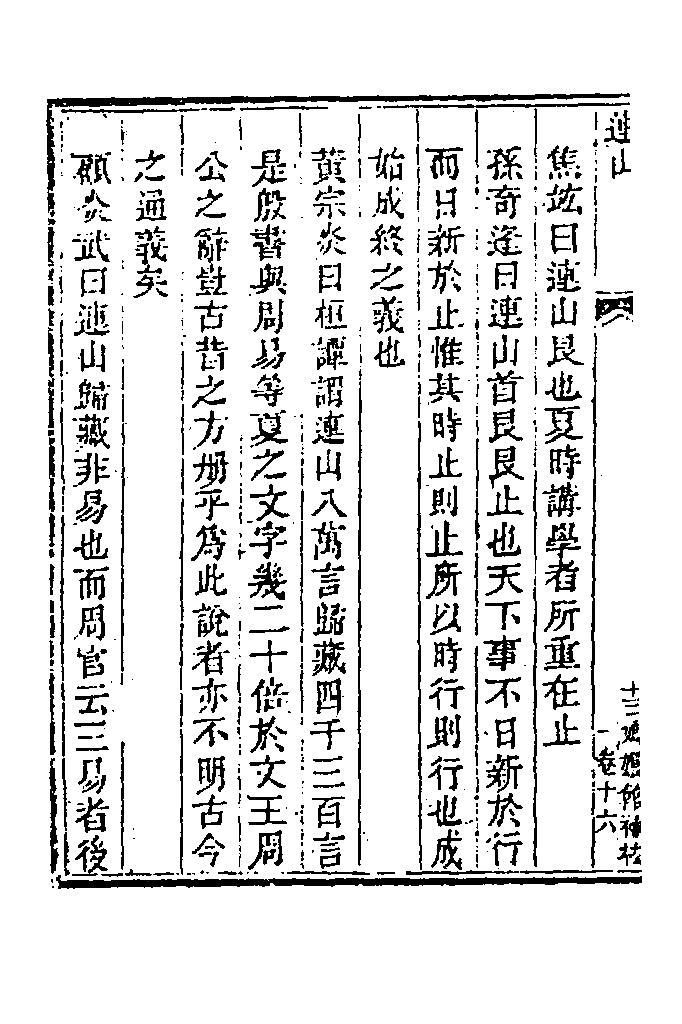 連山
十二
卷十六
焦竑曰連山艮也夏時講學者所重在止
孫奇逢曰連山首艮艮止也天下事不日新於行
而日新於止惟其時止則止所以時行則行也成
始成終之義也
黃宗炎曰桓譚謂連山八萬言歸藏四千三百言
是殷書與周易等夏之文字幾二十倍於文王周
公之辭豈古昔之方册乎爲此說者亦不明古今
之通義矣
顧炎武曰連山歸藏非易也而周官云三易者後